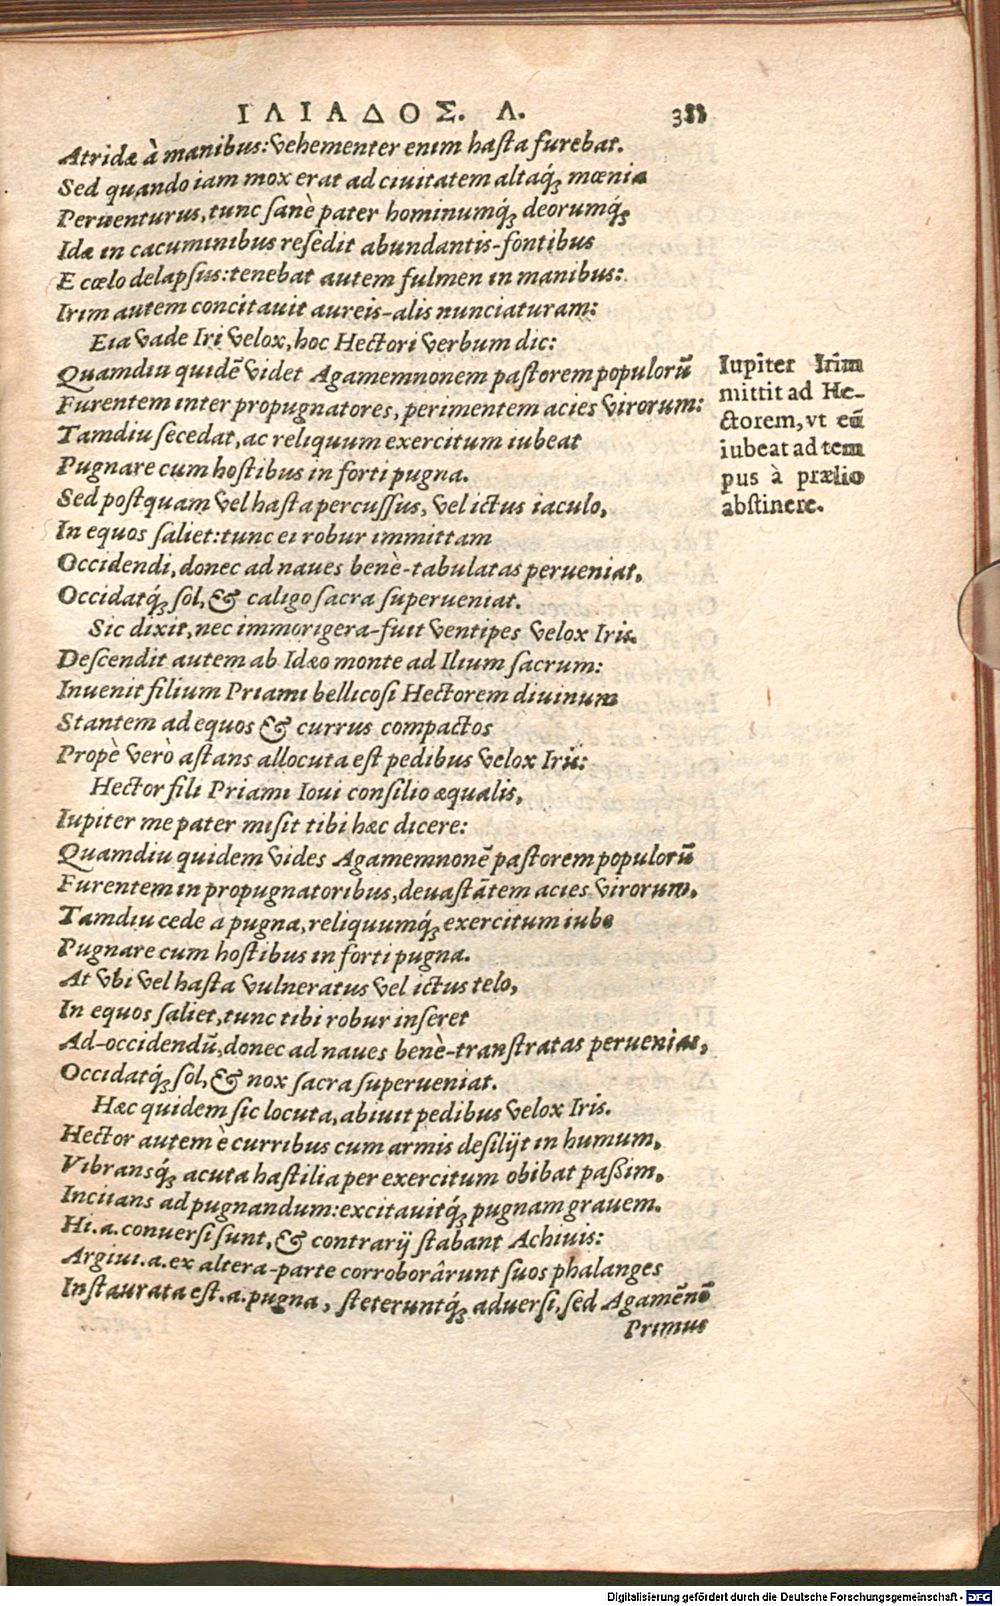 ΙΛΙΑΔΟΣ. Λ.
Atridæ à manibus: vehementer enim hasta furebat.
Sed quando iam mox erat ad ciuitatem altaq́; mœnia
Peruenturus, tunc sanè pater hominumq́; deorumq́;
Idæ in cacuminibus resedit abundantis-fontibus
E cœlo delapsus: tenebat autem fulmen in manibus:
Irim autem concitauit aureis-alis nunciaturam:
Eia vade Iri velox, hoc Hectori verbum dic:
Quamdiu quidē videt Agamemnonem pastorem populorū
Furentem inter propugnatores, perimentem acies virorum:
Tamdiu secedat, ac reliquum exercitum iubeat
Pugnare cum hostibus in forti pugna.
Sed postquam vel hasta percussus, vel ictus iaculo,
In equos saliet: tunc ei robur immittam
Occidendi, donec ad naues benè-tabulatas perueniat,
Occidatq́; sol, & caligo sacra superueniat.
Sic dixit, nec immorigera-fuit ventipes velox Iris.
Descendit autem ab Idæo monte ad Ilium sacrum:
Inuenit filium Priami bellicosi Hectorem diuinum
Stantem ad equos & currus compactos
Propè vero astans allocuta est pedibus velox Iris:
Hector fili Priami Ioui consilio æqualis,
Iupiter me pater misit tibi hæc dicere:
Quamdiu quidem vides Agamemnonē pastorem populorū
Furentem in propugnatoribus, deuastātem acies virorum,
Tamdiu cede a pugna, reliquumq́; exercitum iube
Pugnare cum hostibus in forti pugna.
At vbi vel hasta vulneratus vel ictus telo,
In equos saliet, tunc tibi robur inseret
Ad-occidendū, donec ad naues benè-transtratas peruenias,
Occidatq́; sol, & nox sacra superueniat.
Hæc quidem sic locuta, abiuit pedibus velox Iris.
Hector autem è curribus cum armis desilijt in humum,
Vibransq́; acuta hastilia per exercitum obibat paßim,
Incitans ad pugnandum: excitauitq́; pugnam grauem.
Hi .a. conuersi sunt, & contrarij stabant Achiuis:
Argiui .a. ex altera-parte corroborârunt suos phalanges
Instaurata est .a. pugna, steteruntq́; aduersi, sed Agamēnō
Primus
Iupiter Irim
mittit ad He-
ctorem, vt eū
iubeat ad tem
pus à prælio
abstinere.
Digitalisierung gefördert durch die Deutsche Forschungsgemeinschaft - DFG